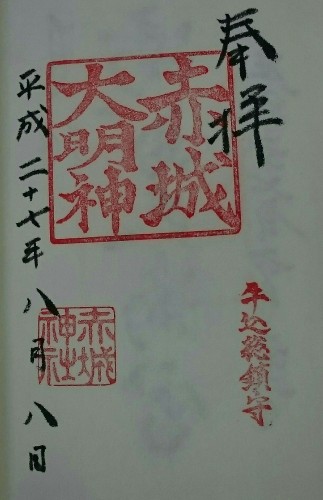 奉拝
赤城
大明神
牛込総鎮守
赤城
神社
平成二十七年八月八日